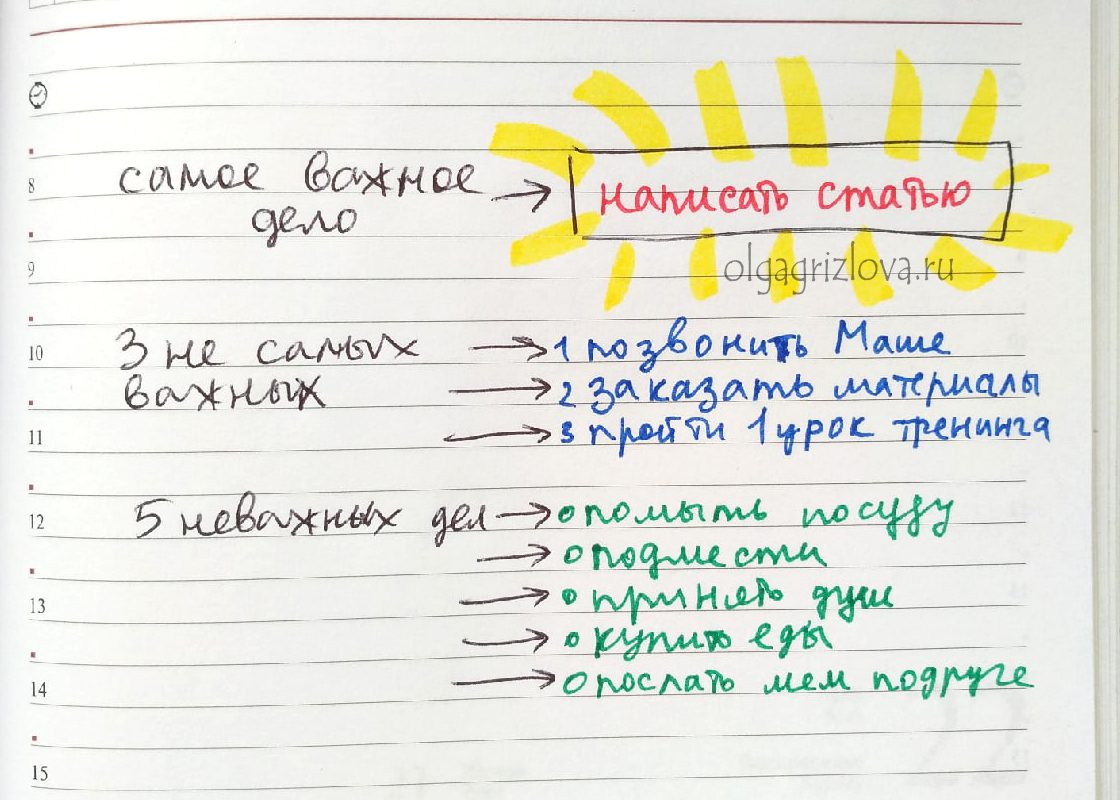 8 самое важное → написать статью
дело
olgagrizlova.ru
9
10 3 не самых → 1 позвонить Маше
важных → 2 заказать материалы
11 → 3 пройти 1 урок тренинга
12 5 неважных дел → о помыть посуду
→ о подмести
13 → о принять душ
→ о купить еды
14 → о послать мем подруге
15